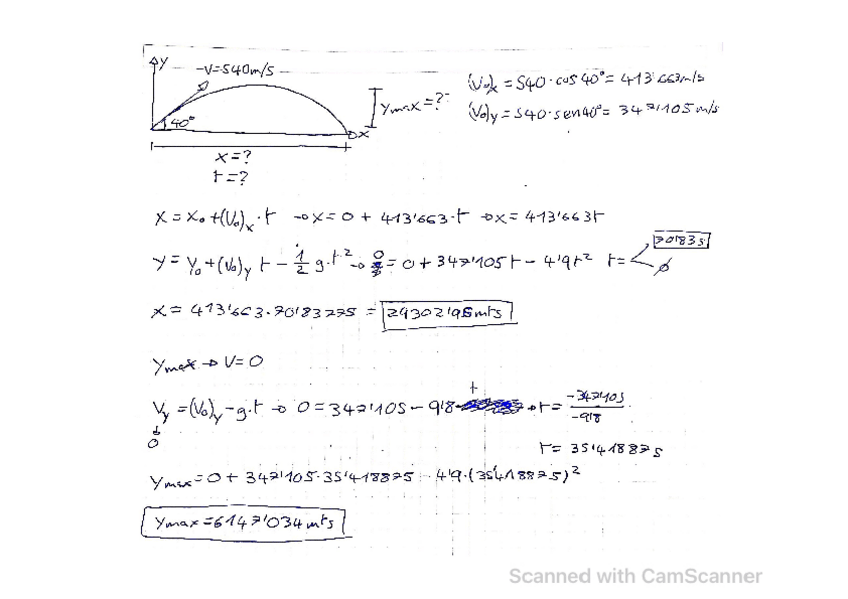 y
V=540m/s
(V₀)x = 540·cos 40°= 413'663m/s
ymax=?
(V₀)y = 540·sen40°= 347'105 m/s
40°
x
x=?
t=?
x = x₀+(V₀)x·t → x= 0 + 413'663·t → x= 413'663t
y = y₀+(V₀)y t - 1/2 g·t² → 0 = 0+347'105t - 4'9t² t= 70'83s
x = 413'663·70'83775 = 29302'95mts
ymax → V=0
Vy =(V₀)y-g·t → 0=347'105-9'8 t → t= -347'105/-9'8
0
t= 35'418875
ymax=0+347'105·35'418875 - 4'9·(35'418875)²
ymax=6147'034mts
Scanned with CamScanner